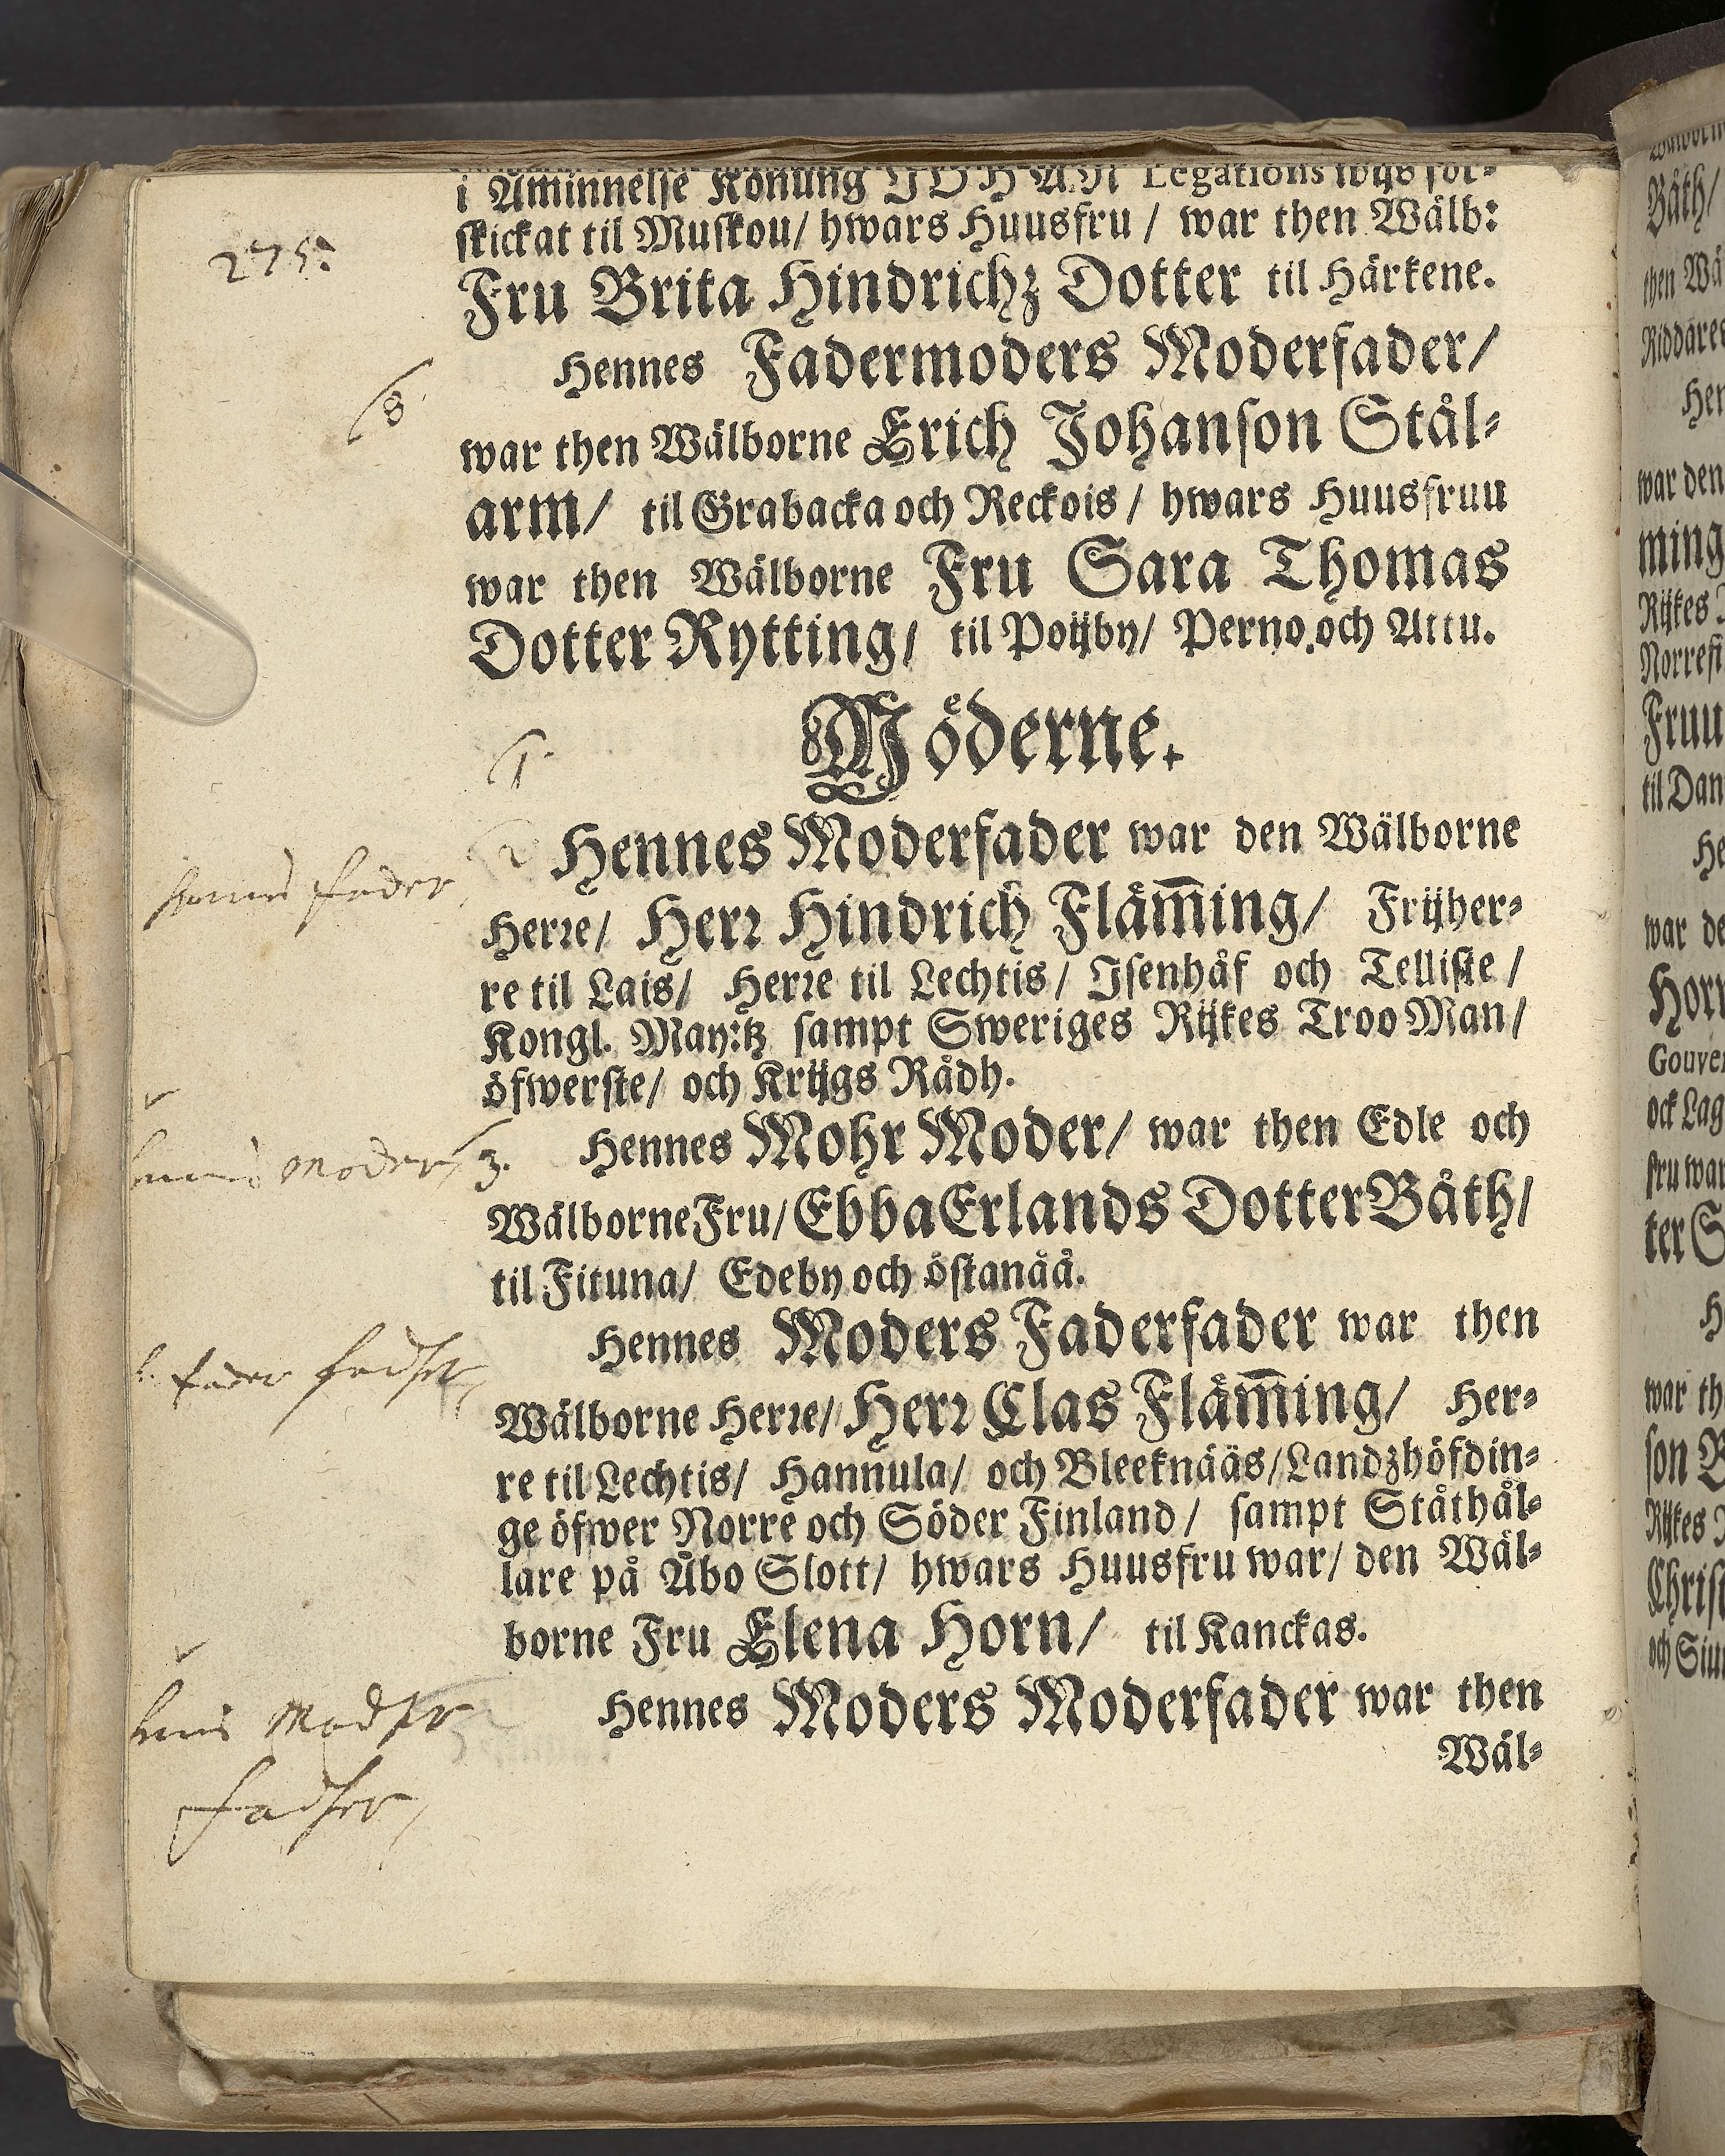 i Åminnelse Konung JOHAN Legations wijs för-
skickat til Muskou/ hwars Huusfru / war then Wälb:
275:
Fru Brita Hindrichz Dotter til Härkene.
Hennes Fadermoders Moderfader/
8.
war then Wälborne Erich Johanson Stål-
arm/ til Grabacka och Reckois / hwars Huusfruu
war then Wälborne Fru Sara Thomas
Dotter Rytting/ til Poijby/ Perno och Attu.
Möderne.
1.
2
Hennes Moderfader war den Wälborne
hennes fader,
Herre/ Herr Hindrich Flämming/ Frijher-
re til Lais/ Herre til Lechtis / Isenhåf och Telliste /
Kongl. May:tz sampt Sweriges Rijkes Troo Man/
öfwerste/ och Krijgs Rådh.
Hennes Mohr Moder/ war then Edle och
hennes Moder, 3.
Wälborne Fru/ Ebba Erlands Dotter Bååth/
til Fituna/ Edeby och östanåå.
Hennes Moders Faderfader war then
h. fader fadher,
Wälborne Herre/ Herr Clas Flämming/ Her-
re til Lechtis/ Hannula/ och Bleeknääs/ Landzhöfdin-
ge öfwer Norre och Söder Finland / sampt Ståthål-
lare på Åbo Slott/ hwars Huusfru war/ den Wäl-
borne Fru Elena Horn/ til Kanckas.
Hennes Moders Moderfader war then
hennes Modher
Fadher,
Wäl-
Bååth/
then Wä
Riddare
Hen
war den
ming
Rijkes
Norrefi
Fruu
til Dan
He
war de
Horn
Gouver
ock Lag
fru war
ter S
H
war th
son B
Rijkes
Christ
och Siu